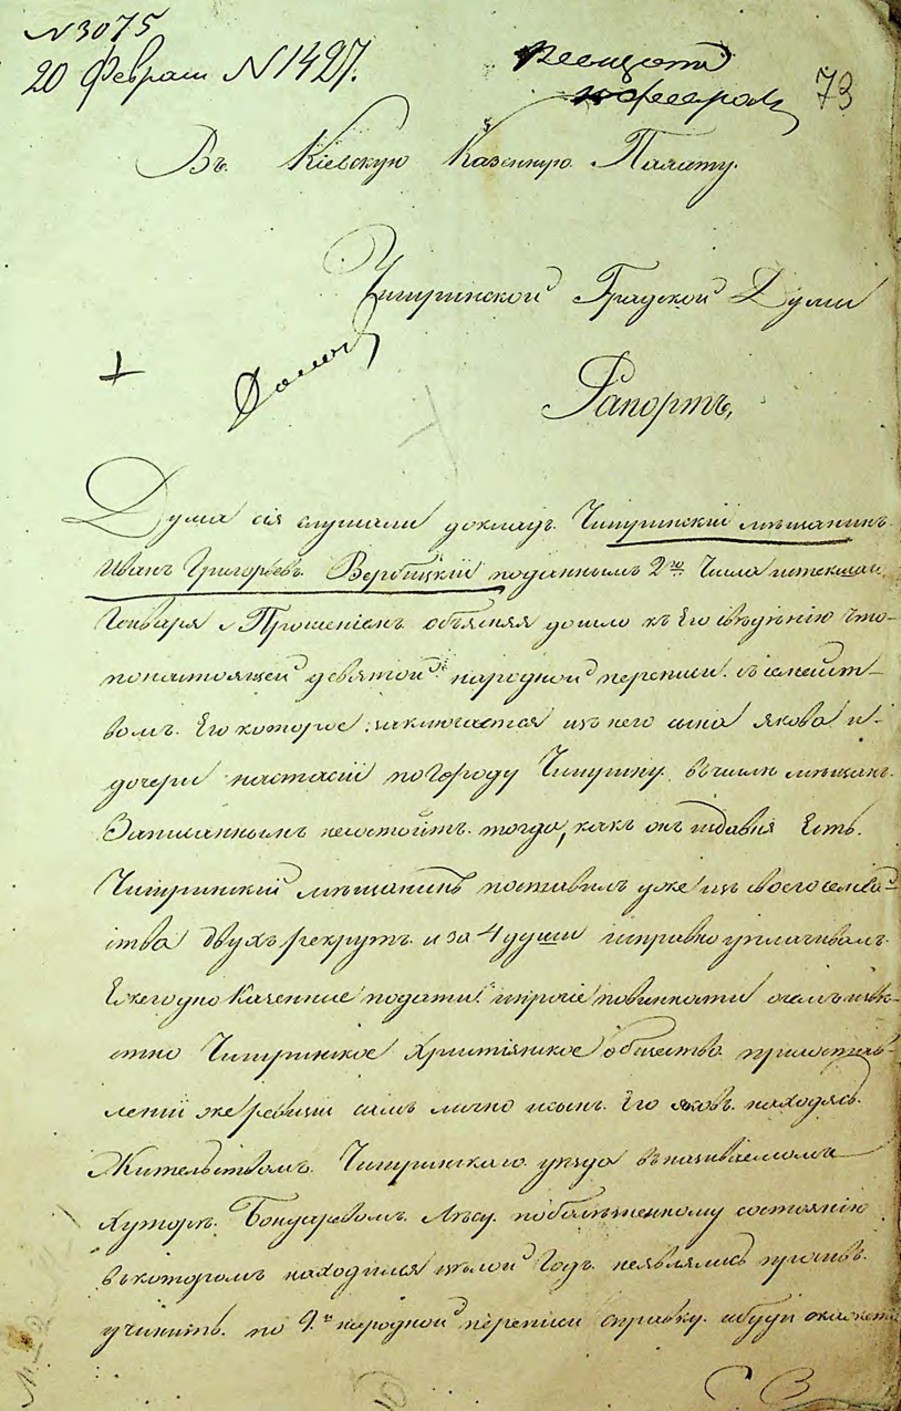 N 3075
20 Февраля N 1427.
73
Въ Кіевскую Казенную Палату.
Чигиринской Градской Думы
Рапортъ,
Дума сія слушали докладъ Чигиринский мѣщанинъ
Иванъ Григорьевъ Вербицкій поданнымъ 2го Числа истекшаго
Генваря Прошеніемъ объясняя дошло къ Его свѣдѣнію что
по настоящей девятой народной переписи съ семейст-
вомъ Его которое заключается изъ него сына Якова и
дочери Настасіи по Городу Чигирину въ числѣ мѣщанъ
Записаннымъ несостоитъ тогда, какъ онъ издавна Есть
Чигиринскій мѣщанинъ поставилъ уже изъ своего семей-
ства двухъ рекрутъ и за 4 души исправно уплачивалъ
Ежегодно Казенные подати и прочіе повинности о чемъ извѣ-
стно Чигиринское Христіянское общество при составле-
ленiи же ревизіи самъ лично и сынъ Его Яковъ находясь
Жительствомъ Чигиринскаго уезда въ называемомъ
Хуторѣ Бондаревомъ Лѣсу по болѣзненному состоянію
въ которомъ находился целой Годъ неявлялись просивъ
учинить по 9й народной переписи справку и буди окажется